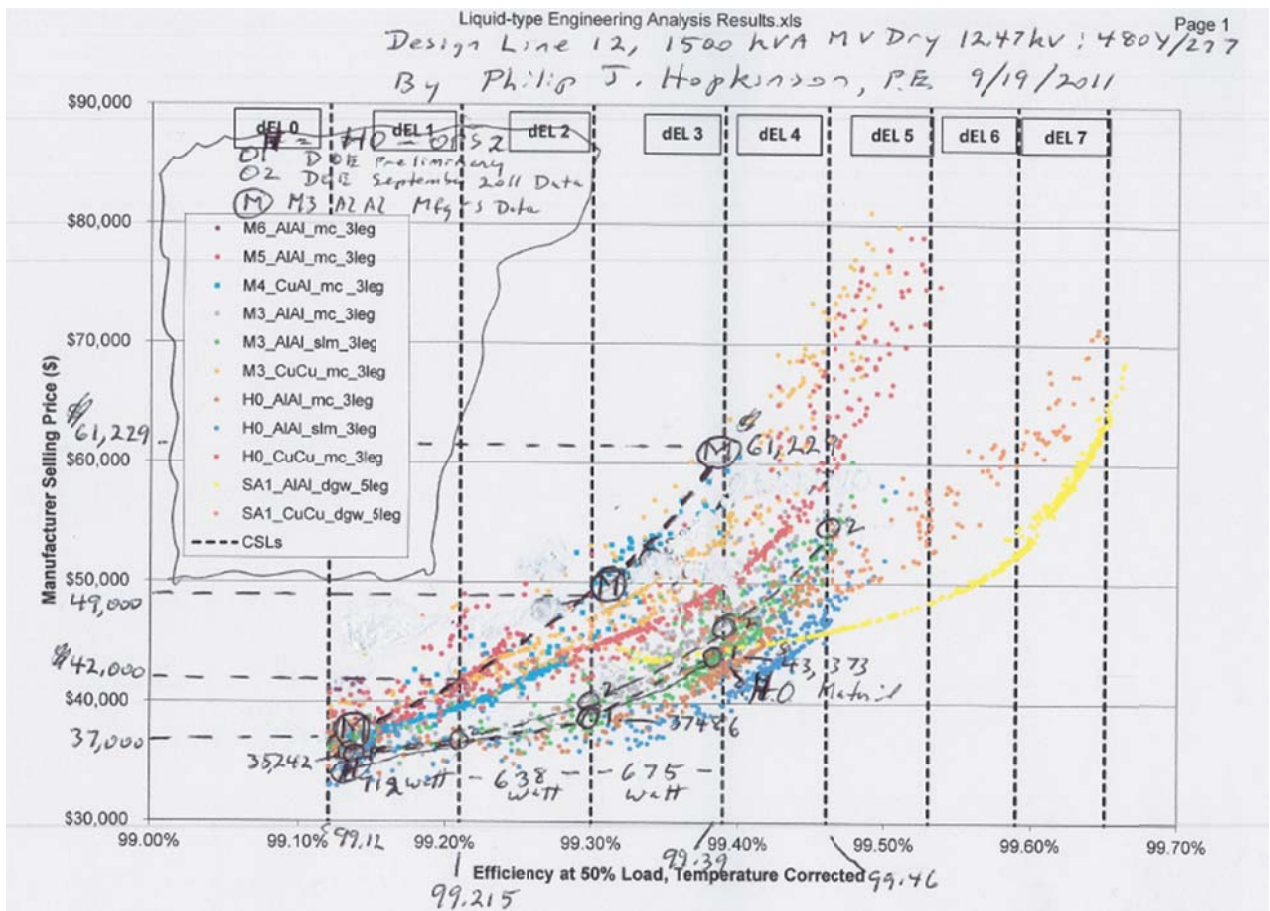 Liquid-type Engineering Analysis Results.xls
Page 1
Design Line 12, 1500 kVA MV Dry 12.47kv: 480Y/277
By Philip J. Hopkinson, P.E. 9/19/2011
$90,000
dEL 0
dEL 1
dEL 2
dEL 3
dEL 4
dEL 5
dEL 6
dEL 7
O1 DOE Preliminary
O2 DOE September 2011 Data
M M3 ALAL Mfgrs Data
$80,000
M6_AlAl_mc_3leg
M5_AlAl_mc_3leg
M4_CuAl_mc_3leg
M3_AlAl_mc_3leg
M3_AlAl_slm_3leg
M3_CuCu_mc_3leg
H0_AlAl_mc_3leg
H0_AlAl_slm_3leg
H0_CuCu_mc_3leg
SA1_AlAl_dgw_5leg
SA1_CuCu_dgw_5leg
CSLs
$70,000
Manufacturer Selling Price ($)
$61,229
M
$61,229
$60,000
$50,000
49,000
M
2
$42,000
2
1
$43,373
H-0 Material
$40,000
2
1
37486
37,000
M
2
35,242
H
712 watt
638 watt
675 watt
$30,000
99.00%
99.10%
99.12
99.20%
99.30%
99.40%
99.50%
99.60%
99.70%
99.39
Efficiency at 50% Load, Temperature Corrected
99.46
99.215